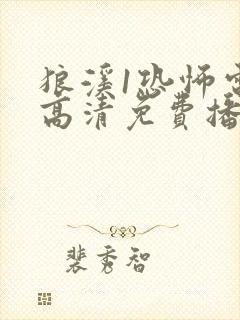 狼溪1恐怖电
高清免费播
裴秀智